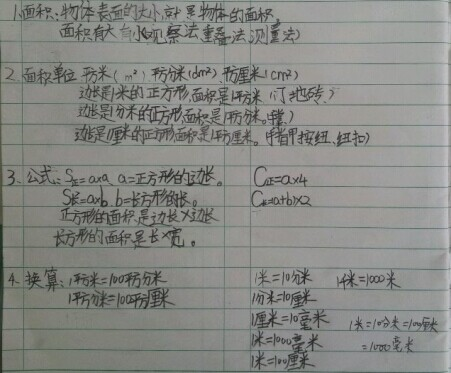 1.面积:物体表面的大小就是物体的面积。
面积有大有小(观察法重叠法测量法)
2.面积单位 平方米(m²)平方分米(dm²)平方厘米(cm²)
边长是1米的正方形,面积是1平方米(1丁地砖)
边长是1分米的正方形面积是1平方分米。
边长是1厘米的正方形面积是1平方厘米。(手指甲按纽、纽扣)
3、公式:S正=a×a a=正方形的边长。 C正=a×4
S长=a×b b=长方形的长。 C长=(a+b)×2
正方形的面积是边长×边长
长方形的面积是长×宽。
4.换算:1平方米=100平方分米 1米=10分米 1千米=1000米
1平方分米=100平方厘米 1分米=10厘米
1厘米=10毫米 1米=10分米=100厘米
1米=1000毫米 =1000毫米
1米=100厘米